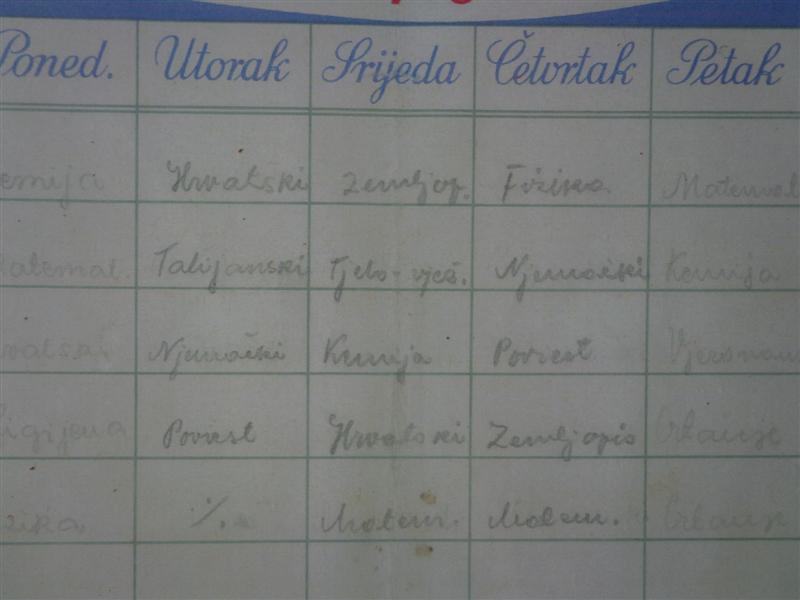 Poned. Utorak Srijeda Četvrtak Petak
emija Hrvatski Zemljop. Fizika Matemat
atemat. Talijanski Tjelo-vjež. Njemački Kemija
vatski Njemački Kemija Poviest Vjeronau
igijena Poviest Hrvatski Zemljopis Crtanje
zika /. Matem. Matem. Crtanje